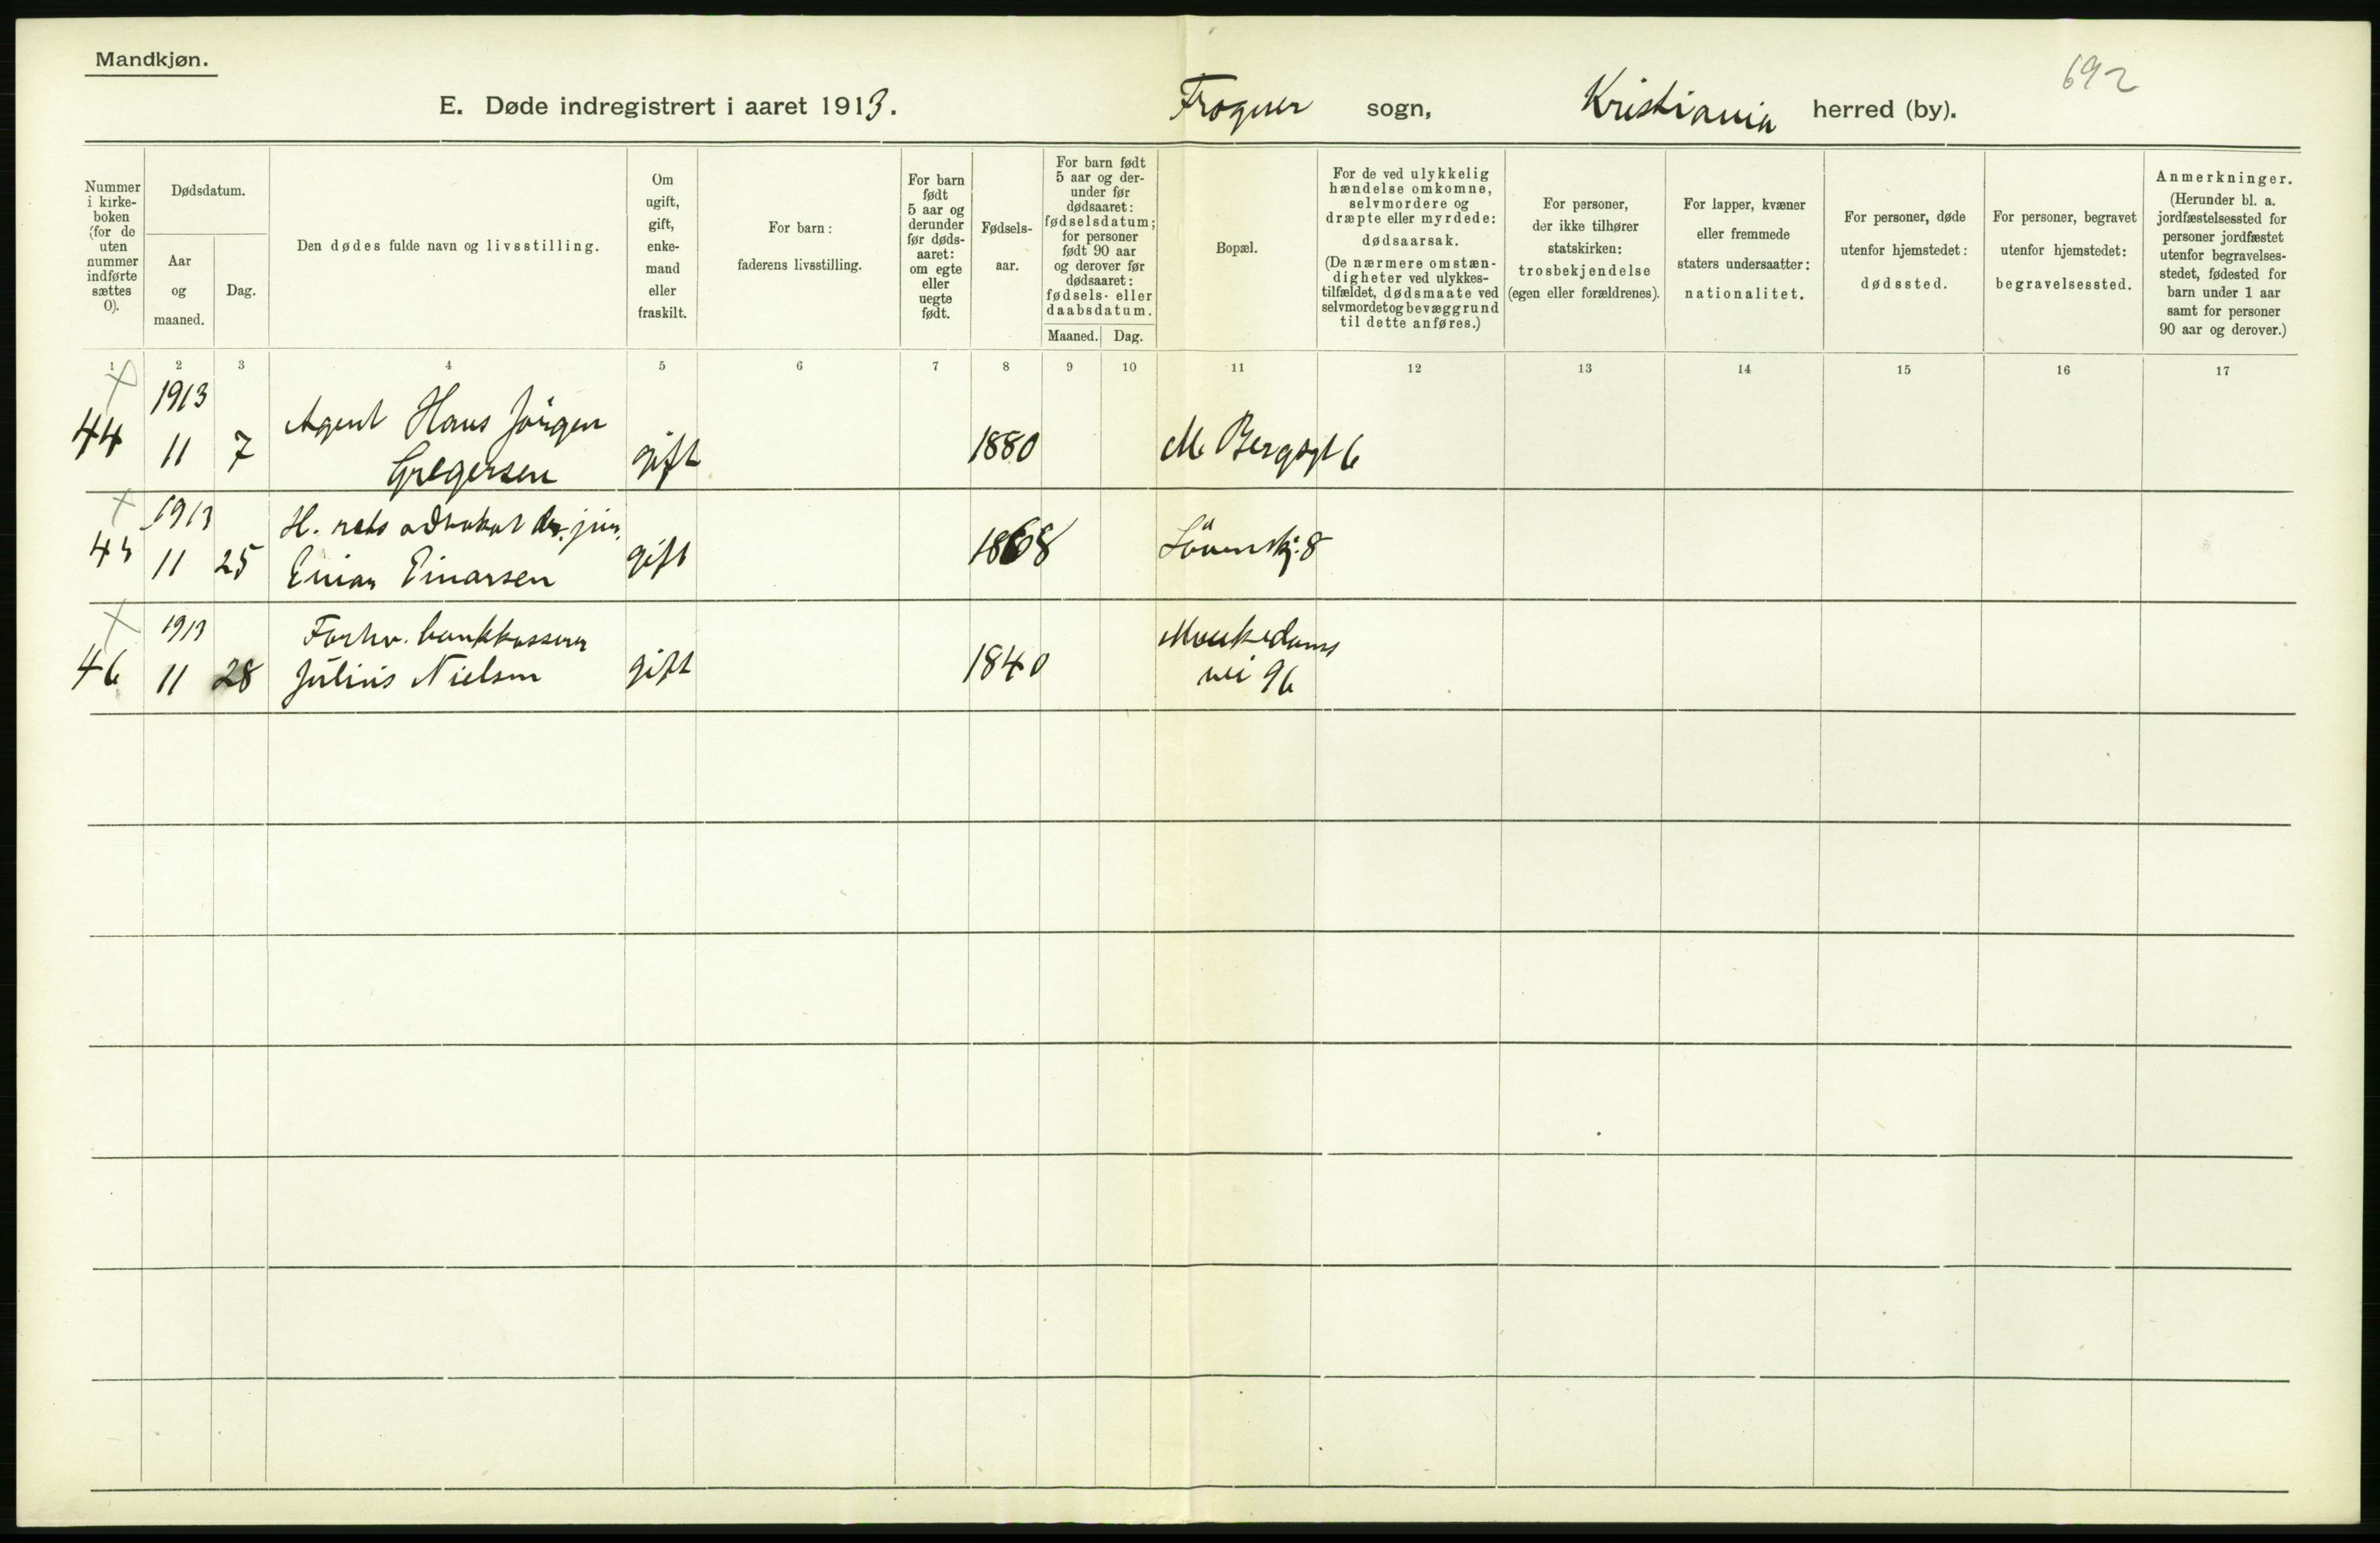 Mandkjøn.
692
E. Døde indregistrert i aaret 1913. Frogner sogn, Kristiania herred (by).
Nummer i kirke-boken (for de uten nummer indførte sættes 0).
Dødsdatum.
Aar og maaned.
Dag.
Den dødes fulde navn og livsstilling.
Om ugift, gift, enke-mand eller fraskilt.
For barn: faderens livsstilling.
For barn født 5 aar og derunder før døds-aaret: om egte eller uegte født.
Fødsels-aar.
For barn født 5 aar og der-under før dødsaaret: fødselsdatum; for personer født 90 aar og derover før dødsaaret: fødsels- eller daabsdatum.
Maaned. Dag.
Bopæl.
For de ved ulykkelig hændelse omkomne, selvmordere og dræpte eller myrdede: dødsaarsak. (De nærmere omstæn-digheter ved ulykkes-tilfældet, dødsmaate ved selvmordet og bevæggrund til dette anføres.)
For personer, der ikke tilhører statskirken: trosbekjendelse (egen eller forældrenes).
For lapper, kvæner eller fremmede staters undersaatter: nationalitet.
For personer, døde utenfor hjemstedet: dødssted.
For personer, begravet utenfor hjemstedet: begravelsessted.
Anmerkninger. (Herunder bl. a. jordfæstelsessted for personer jordfæstet utenfor begravelses-stedet, fødested for barn under 1 aar samt for personer 90 aar og derover.)
1 2 3 4 5 6 7 8 9 10 11 12 13 14 15 16 17
1913
44 11 7 Agent Hans Jörgen
Gregersen gift 1880 M. Bergsgt 6
1913
H. rets advokat dr. jur.
45 11 25 Einar Einarsen gift 1868 Lövenskj. 8
1913
Forhv. bankkasserer Munkedams
46 11 28 Julius Nielsen gift 1840 vei 96